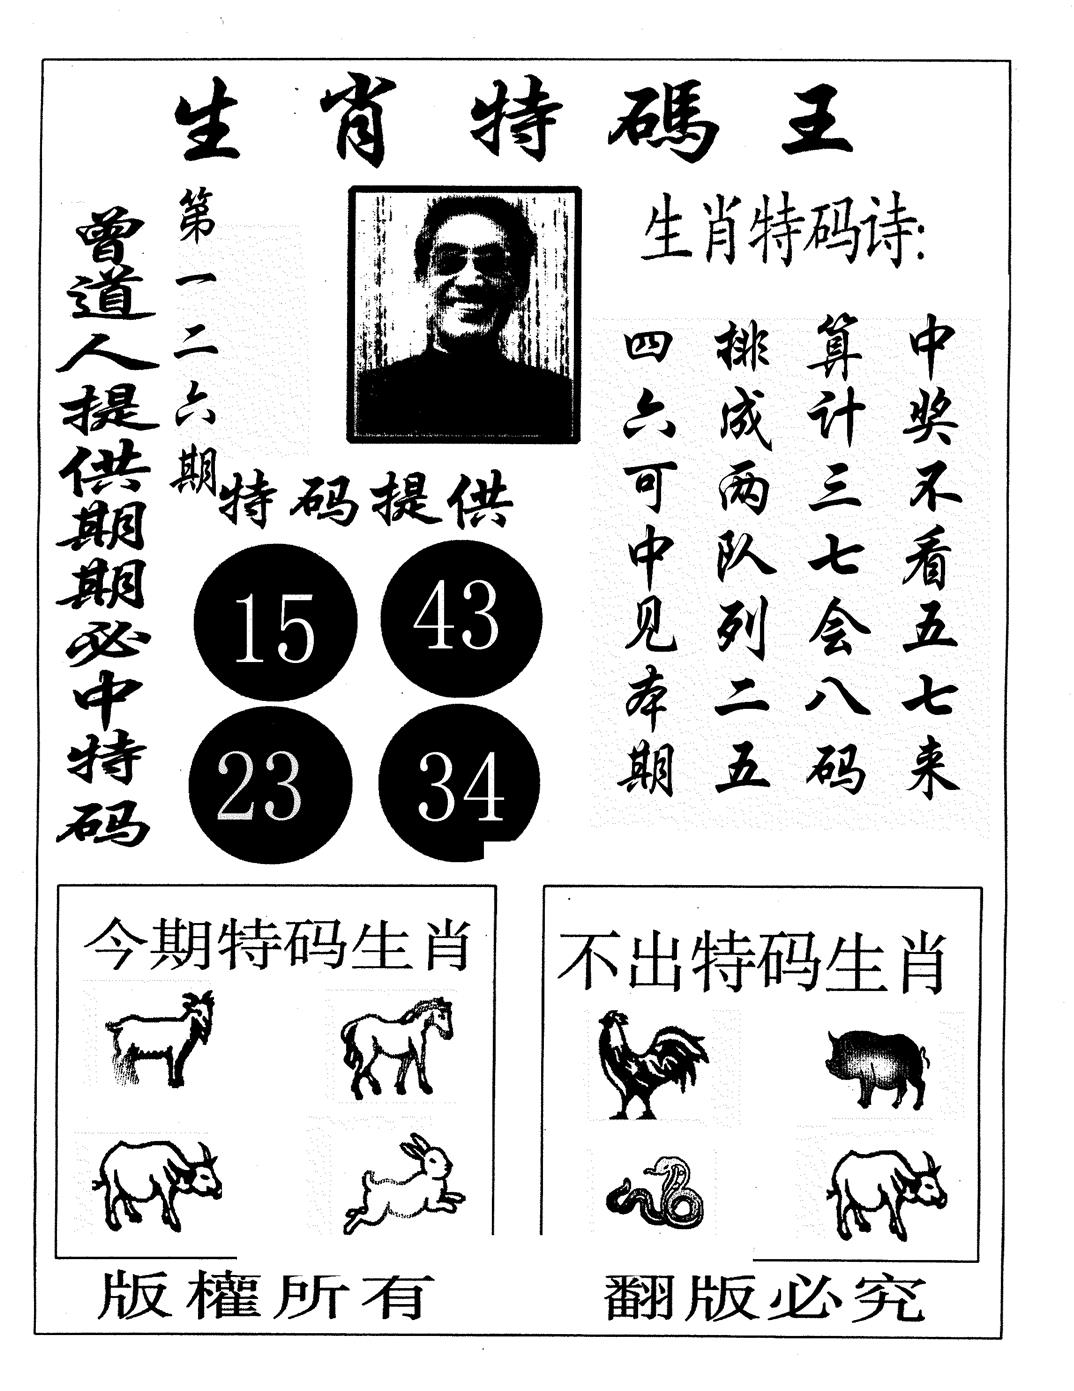 生肖特碼王
曾道人提供期期必中特码
第一二六期
特码提供
15 43
23 34
生肖特码诗:
中奖不看五七来
算计三七会八码
排成两队列二五
四六可中见本期
今期特码生肖
不出特码生肖
版權所有
翻版必究